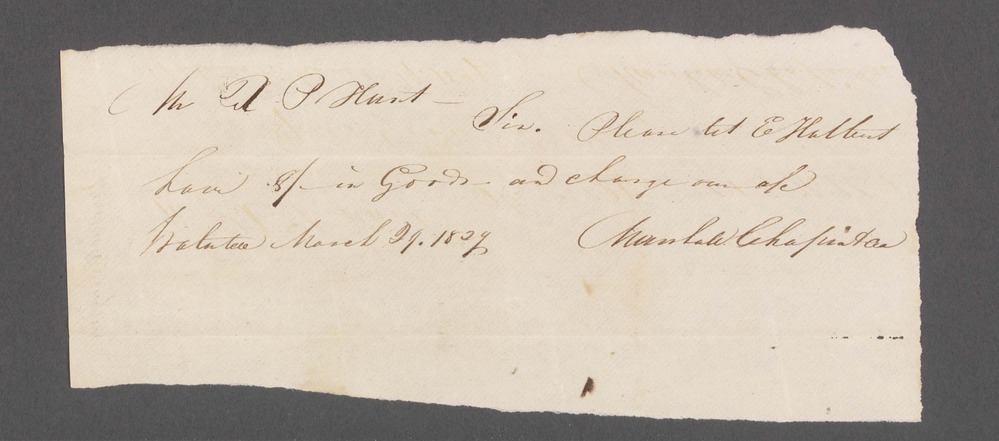 Mr P Hunt —
Sir. Please let E Halbert
have 8/– in Goods and charge our a/c
March 29. 1827 Marshall Chapin & Co